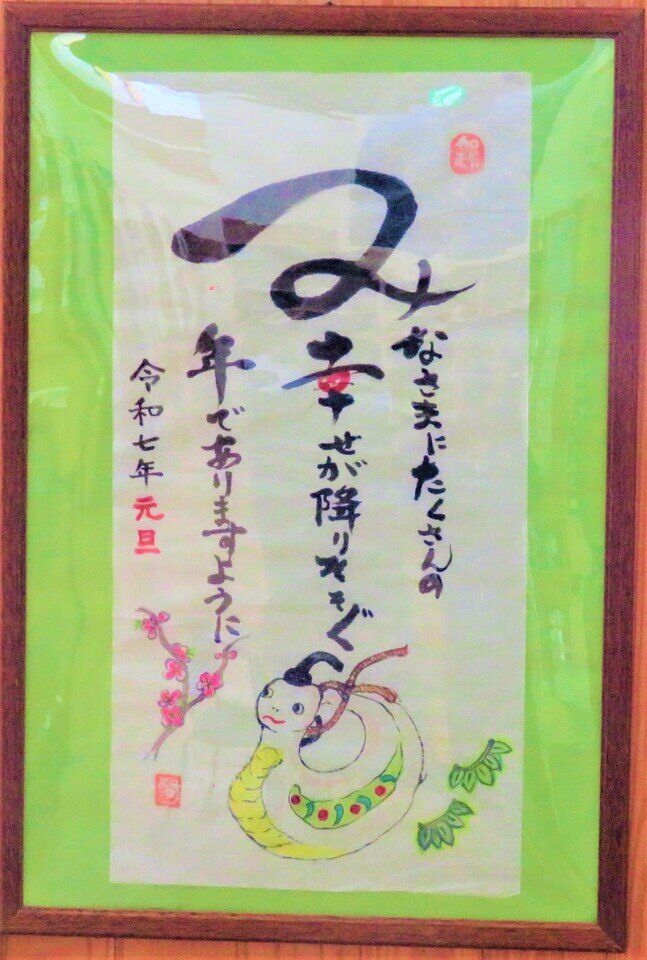 みなさまにたくさんの
幸せが降りそそぐ
年でありますように
令和七年元旦